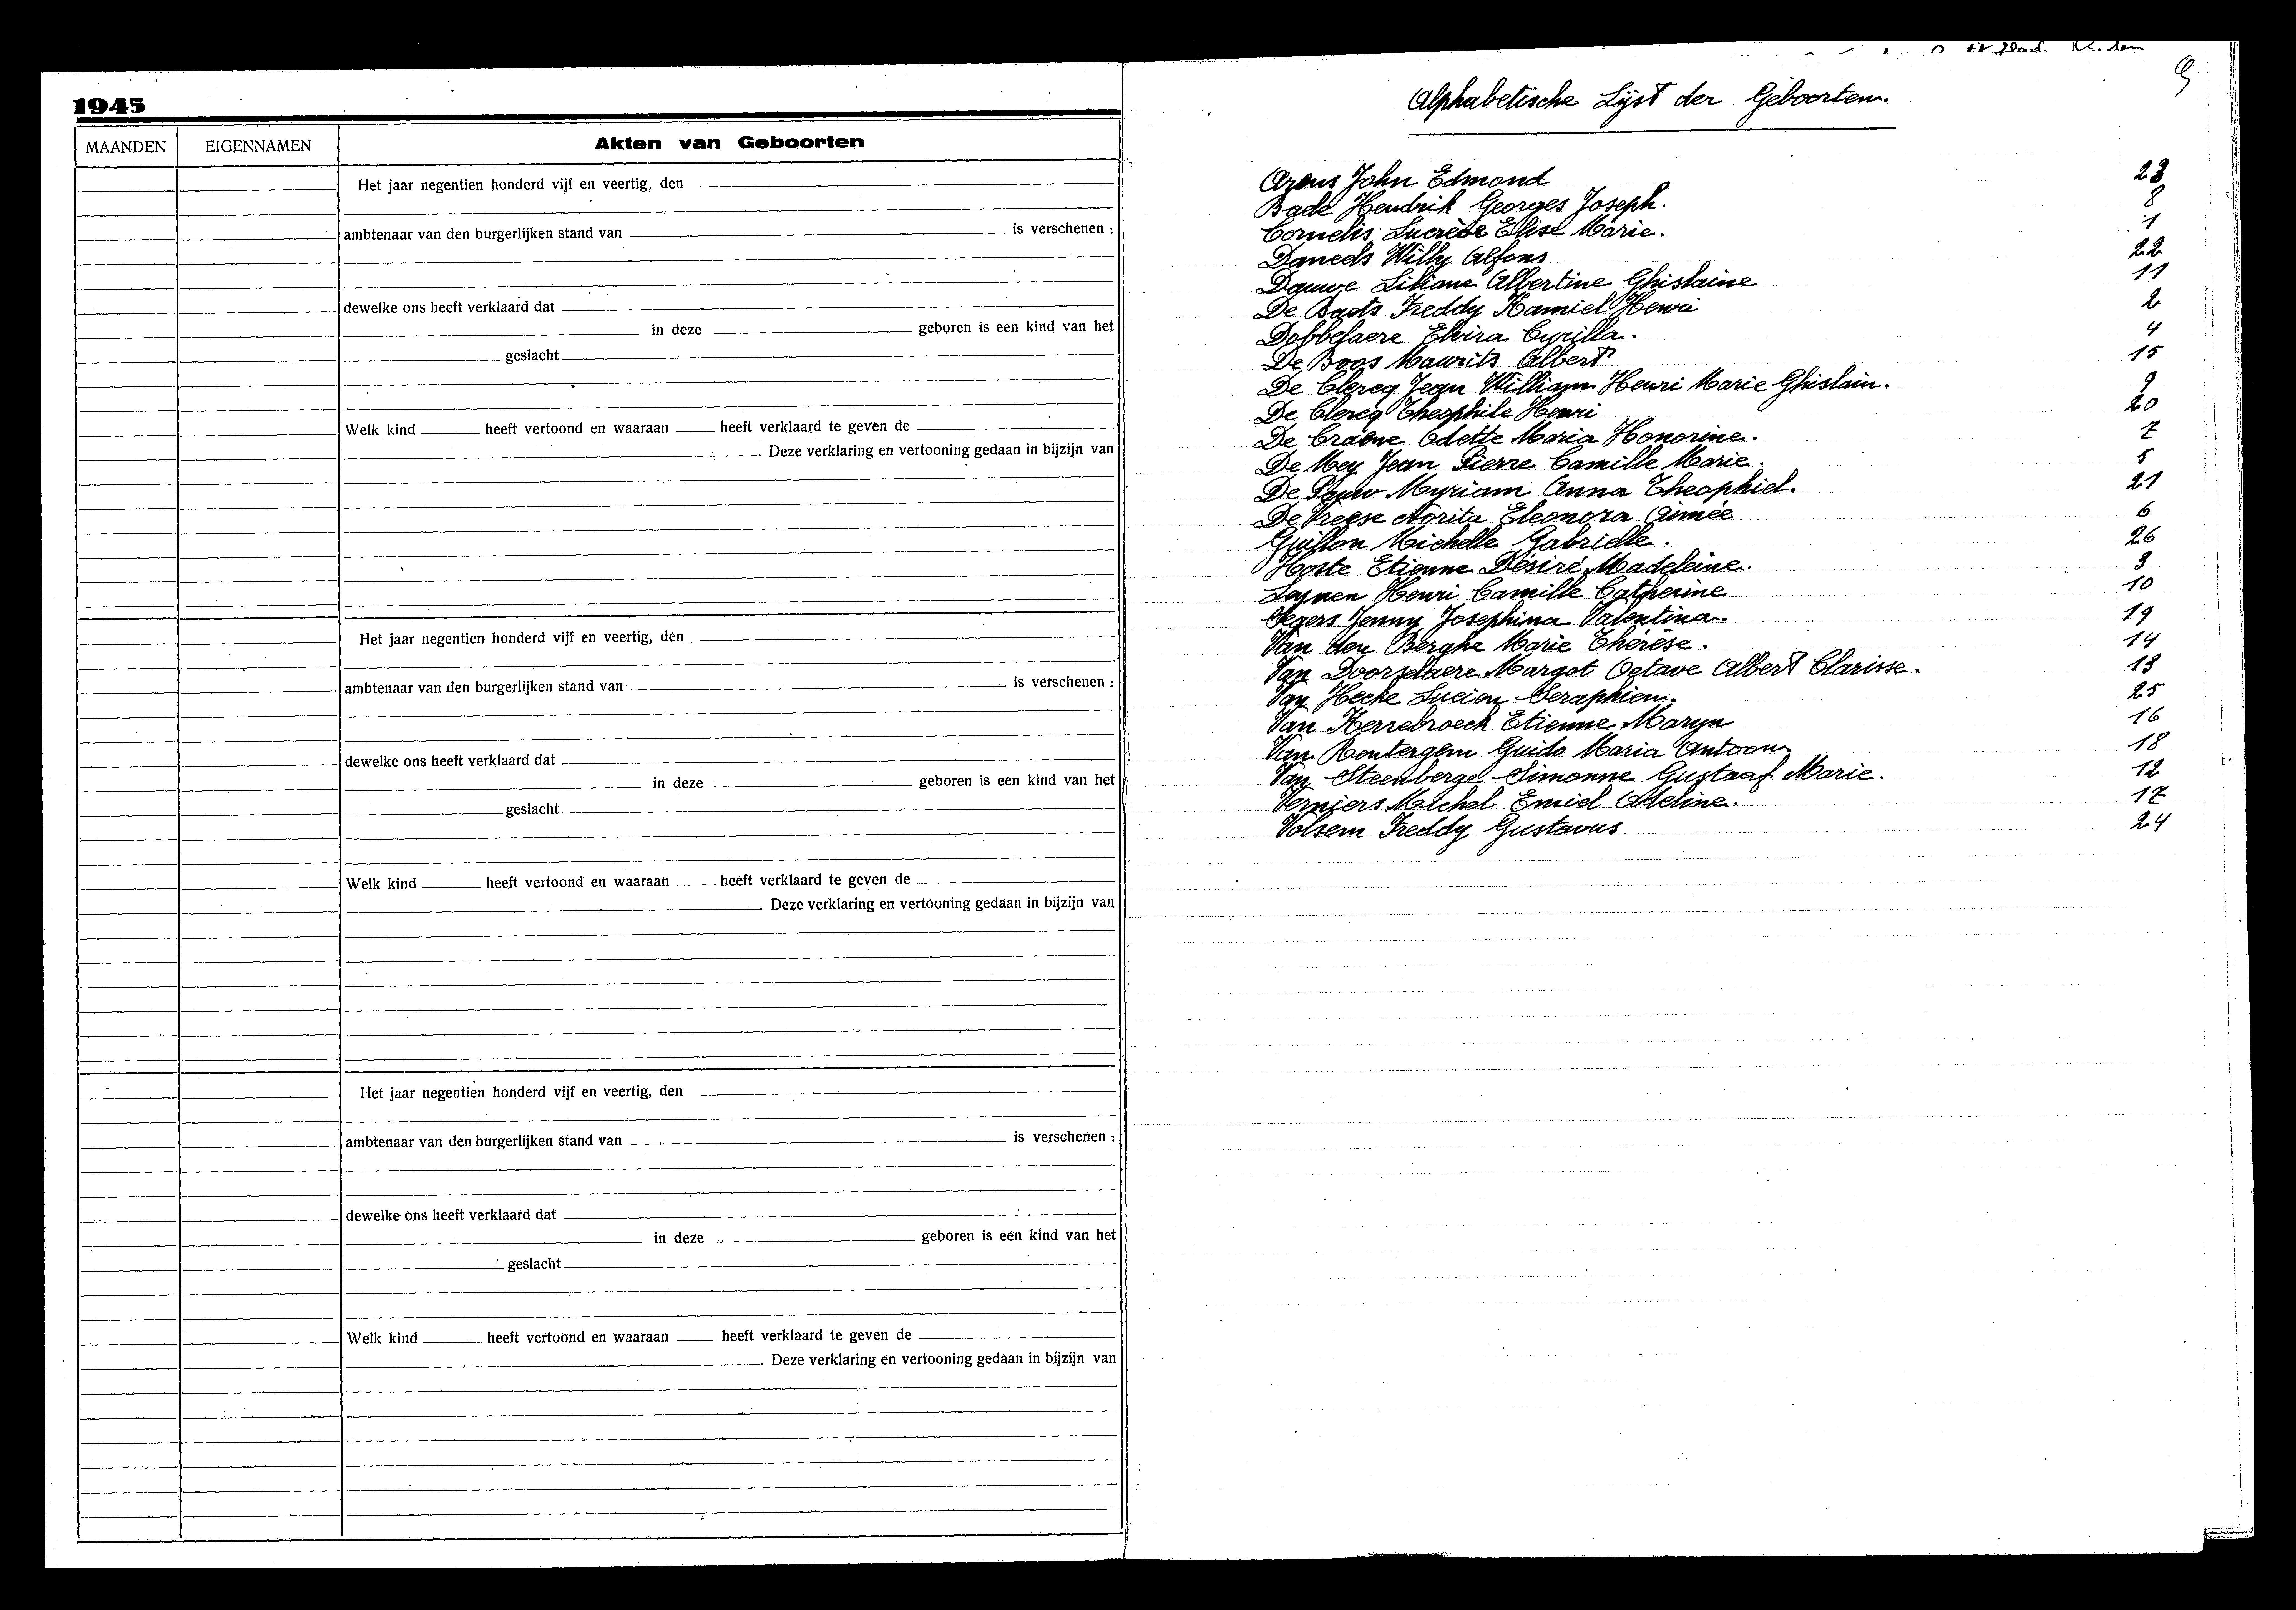 1945
MAANDEN EIGENNAMEN Akten van Geboorten
Het jaar negentien honderd vijf en veertig, den
ambtenaar van den burgerlijken stand van is verschenen :
dewelke ons heeft verklaard dat
in deze geboren is een kind van het
geslacht
Welk kind heeft vertoond en waaraan heeft verklaard te geven de
. Deze verklaring en vertooning gedaan in bijzijn van
Het jaar negentien honderd vijf en veertig, den
ambtenaar van den burgerlijken stand van is verschenen :
dewelke ons heeft verklaard dat
in deze geboren is een kind van het
geslacht
Welk kind heeft vertoond en waaraan heeft verklaard te geven de
. Deze verklaring en vertooning gedaan in bijzijn van
Het jaar negentien honderd vijf en veertig, den
ambtenaar van den burgerlijken stand van is verschenen :
dewelke ons heeft verklaard dat
in deze geboren is een kind van het
geslacht
Welk kind heeft vertoond en waaraan heeft verklaard te geven de
. Deze verklaring en vertooning gedaan in bijzijn van
9
Alphabetische Lijst der Geboorten.
Arens John Edmond 23
Bade Hendrik Georges Joseph. 8
Cornelis Lucrèce Elise Marie. 1
Daneels Willy Alfons 22
Dauwe Liliane Albertine Ghislaine 11
De Baets Freddy Kamiel Henri 2
Dobbelaere Elvira Cyrilla. 4
De Boos Maurits Albert 15
De Clercq Jean William Henri Marie Ghislain. 9
De Clercq Theophile Henri 20
De Craene Odette Maria Honorine. 7
De Mey Jean Pierre Camille Marie. 5
De Pauw Myriam Anna Theophiel. 21
De Vreese Norita Eleonora Aimée 6
Guillon Michelle Gabrielle. 26
Hoste Etienne Désiré Madeleine. 3
Leynen Henri Camille Catherine 10
Segers Jenny Josephina Valentina. 19
Van den Berghe Marie Thérèse. 14
Van Doorselaere Margot Octave Albert Clarisse. 13
Van Hecke Lucien Seraphien. 25
Van Kerrebroeck Etienne Maryn 16
Van Renterghem Guido Maria Antoon 18
Van Steenberge Simonne Gustaaf Marie. 12
Verniers Michel Emiel Adeline. 17
Volsem Freddy Gustavus 24